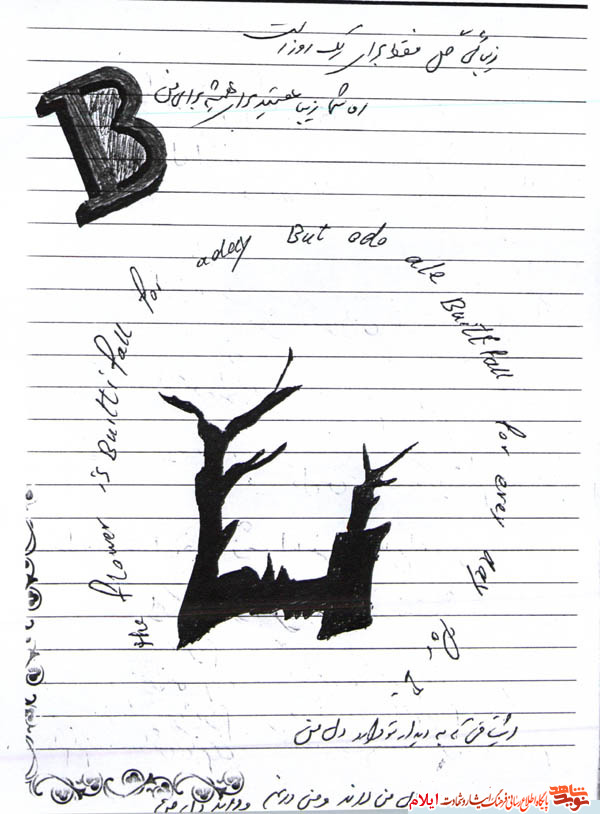 زیبائی گل فقط برای یک روز است
B
اما شما زیبا هستید برای همیشه برای من
the flower is Buitti fall for aday But odo ale Buitifall for erey day
اشتیاقی که به دیدار تو دارد دل من
دل من داند و من دانم و داند دل من
نوید شاهد پایگاه اطلاع رسانی فرهنگ ایثار و شهادت ایلام